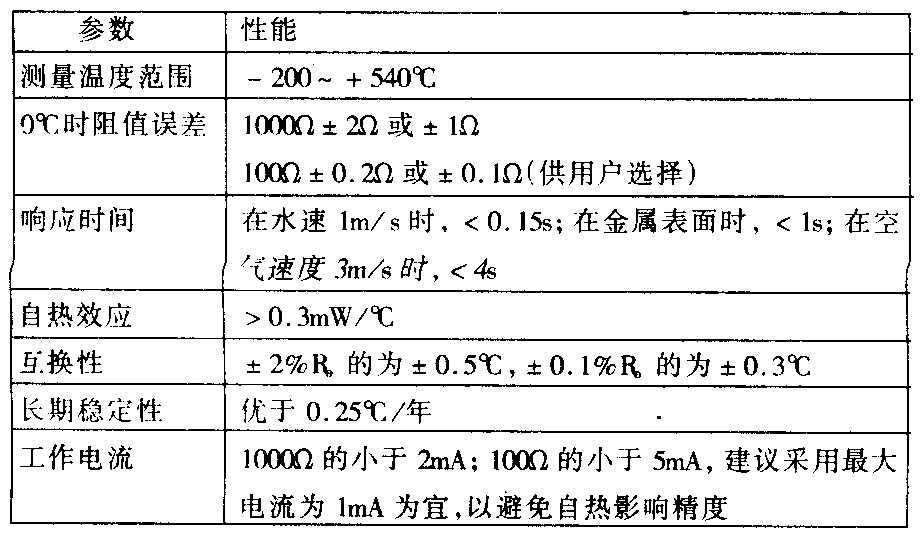 参数 性能
测量温度范围 -200~+540℃
0℃时阻值误差 1000Ω±2Ω或±1Ω
100Ω±0.2Ω或±0.1Ω(供用户选择)
响应时间 在水速1m/s时,<0.15s;在金属表面时,<1s;在空
气速度3m/s时,<4s
自热效应 >0.3mW/℃
互换性 ±2%R₀的为±0.5℃,±0.1%R₀的为±0.3℃
长期稳定性 优于0.25℃/年
工作电流 1000Ω的小于2mA;100Ω的小于5mA,建议采用最大
电流为1mA为宜,以避免自热影响精度